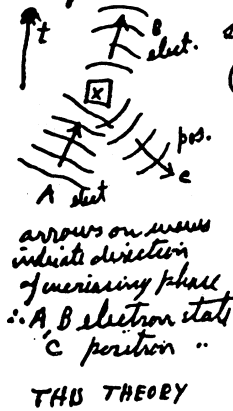 t
B
elect.
x
pos.
C
A elect
arrows on waves
indicate direction
of increasing phase
∴ A, B electron state
C positron "
THIS THEORY